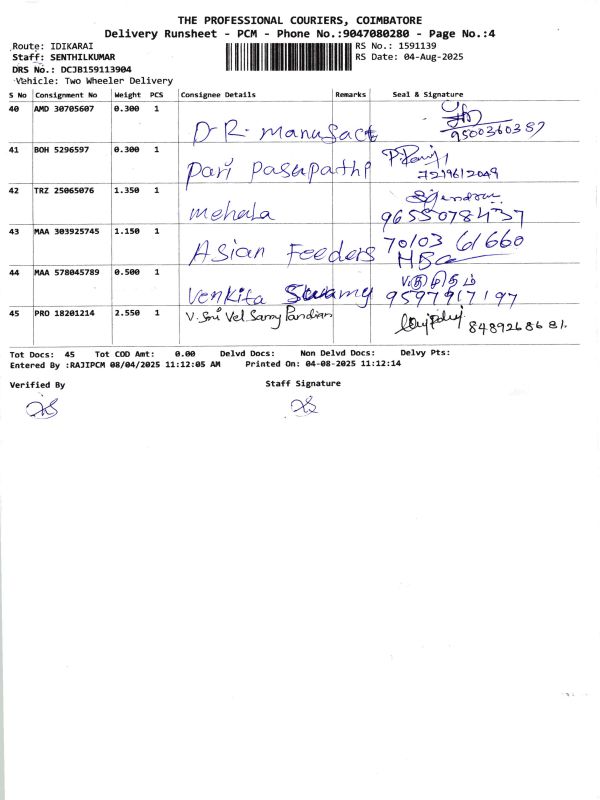 THE PROFESSIONAL COURIERS, COIMBATORE
Delivery Runsheet - PCM - Phone No.:9047080280 - Page No.:4
Route: IDIKARAI RS No.: 1591139
Staff: SENTHILKUMAR RS Date: 04-Aug-2025
DRS No.: DCJB159113904
Vehicle: Two Wheeler Delivery
S No Consignment No Weight PCS Consignee Details Remarks Seal & Signature
40 AMD 30705607 0.300 1 D R. Manufact 9500360387
41 BOH 5296597 0.300 1 Pari Pasupathi 7219612049
42 TRZ 25065076 1.350 1 mehala 9655078437
43 MAA 303925745 1.150 1 Asian Feeders 70103 61660
44 MAA 578045789 0.500 1 Venkita Swamy 9597917197
45 PRO 18201214 2.550 1 V. Sri Vel Samy Pandian 8489268681.
Tot Docs: 45 Tot COD Amt: 0.00 Delvd Docs: Non Delvd Docs: Delvy Pts:
Entered By :RAJIPCM 08/04/2025 11:12:05 AM Printed On: 04-08-2025 11:12:14
Verified By Staff Signature